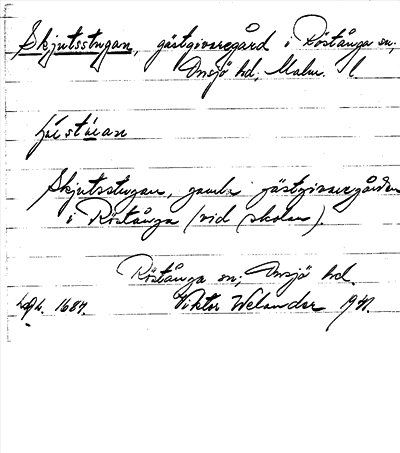 Skjutsstugan, gästgivaregård i Röstånga sn,
Onsjö hd, Malm. l
Skjutsstugan, gamla gästgivaregården
i Röstånga (vid skolan).
Röstånga sn, Onsjö hd.
1687. Viktor Welander 19